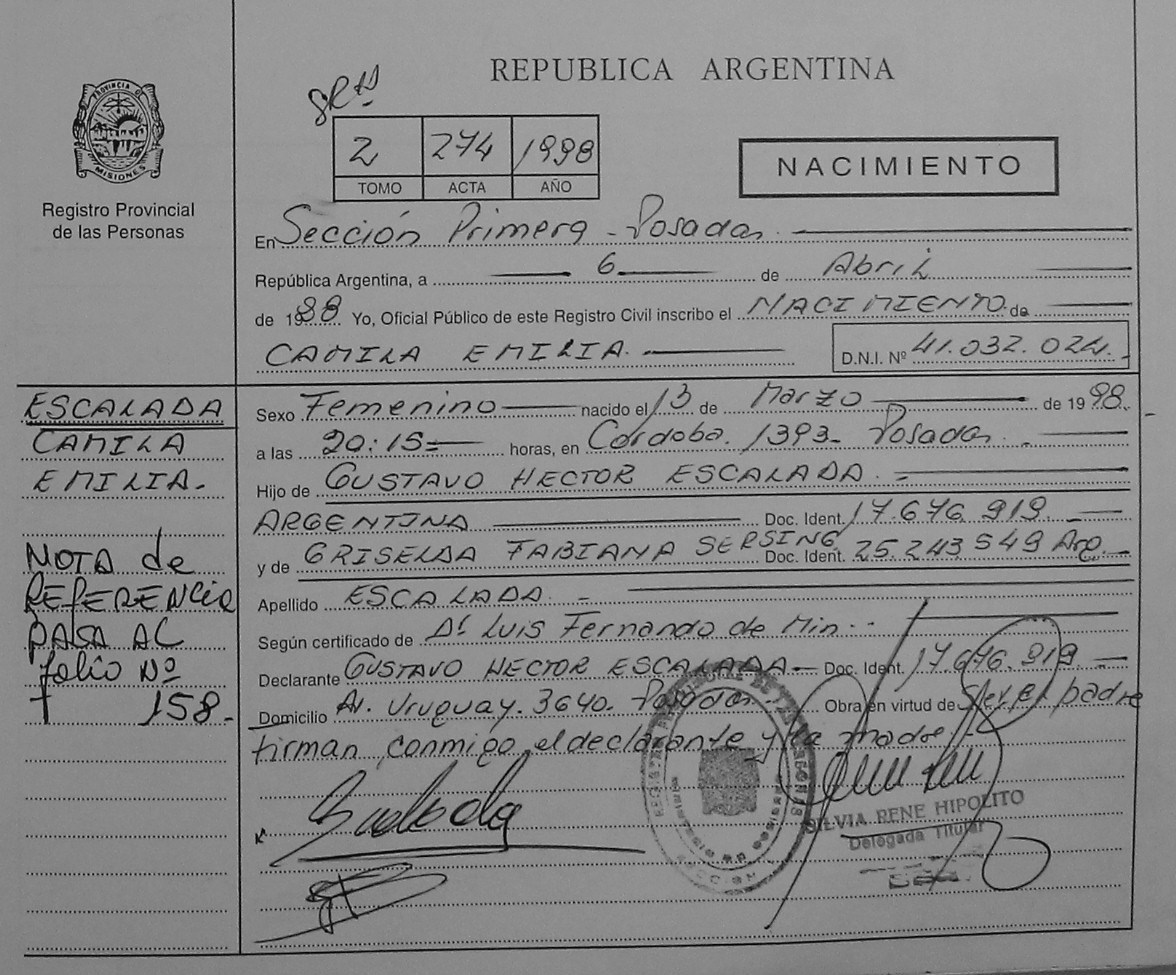 REPUBLICA ARGENTINA
SRES
2 274 1998
TOMO ACTA AÑO
NACIMIENTO
PROVINCIA DE MISIONES
Registro Provincial
de las Personas
En Sección Primera - Posadas
República Argentina, a 6 de Abril
de 1998 Yo, Oficial Público de este Registro Civil inscribo el NACIMIENTO de
CAMILA EMILIA. D.N.I. Nº 41.032.024.
ESCALADA
CAMILA
EMILIA.
NOTA de
REFERENCIA
PASA AL
folio Nº
158.
Sexo Femenino nacido el 13 de Marzo de 1998.
a las 20:15 horas, en Córdoba. 1393 - Posadas.
Hijo de GUSTAVO HECTOR ESCALADA.
ARGENTINA Doc. Ident. 17.676.919.
y de GRISELDA FABIANA SERSING Doc. Ident. 25.243549 Arg.
Apellido ESCALADA. -
Según certificado de Dr Luis Fernando de Min..
Declarante GUSTAVO HECTOR ESCALADA - Doc. Ident. 17.676.919
Domicilio Av. Uruguay. 3640. Posadas Obra en virtud de ser el padre
firman conmigo, el declarante y la madre.
SILVIA RENE HIPOLITO
Delegada Titular